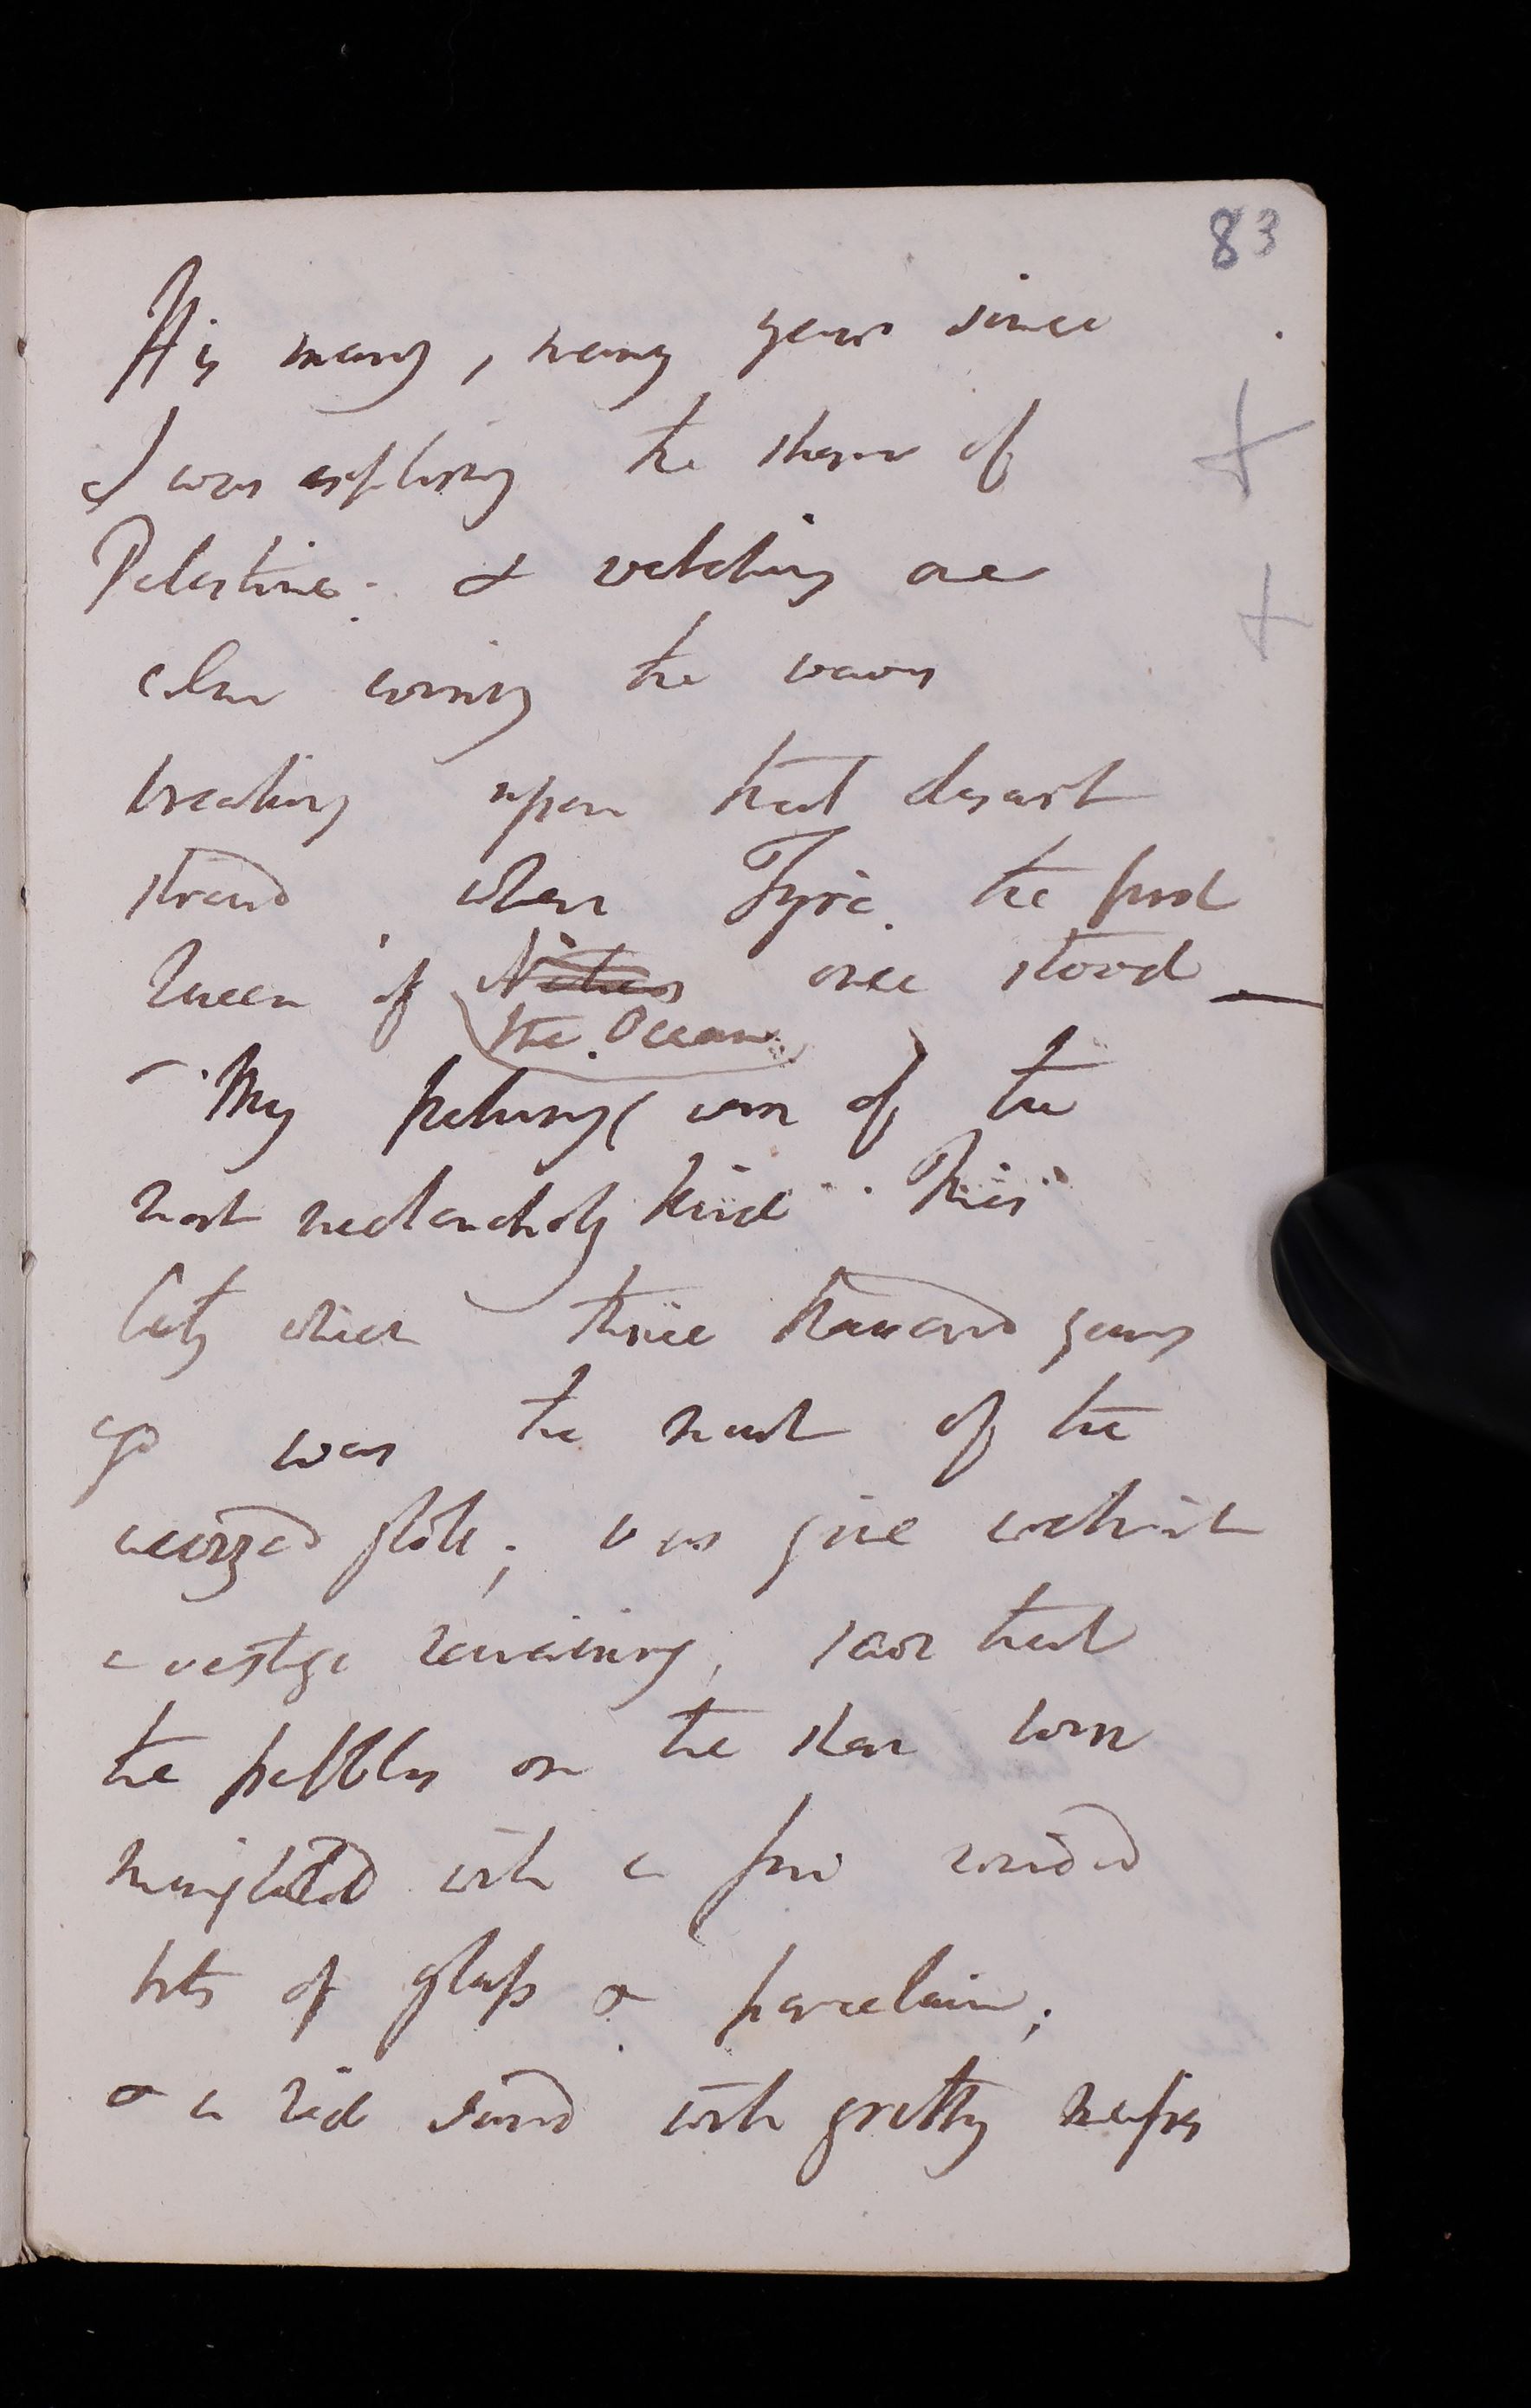 83
It is many, many years since
I was exploring the shores of
Palestine: & watching one
clear evening the waves
breaking upon that desart
strand where Tyre. the proud
Queen of Nations once stood —
the Ocean
– My feelings were of the
most melancholy kind. This
City which three thousand years
ago was the mart of the
world; was gone without
a vestige remaining, save that
the pebbles on the shore were
mingled with a few rounded
bits of glass & porcelain;
& a red sand with gretty masses